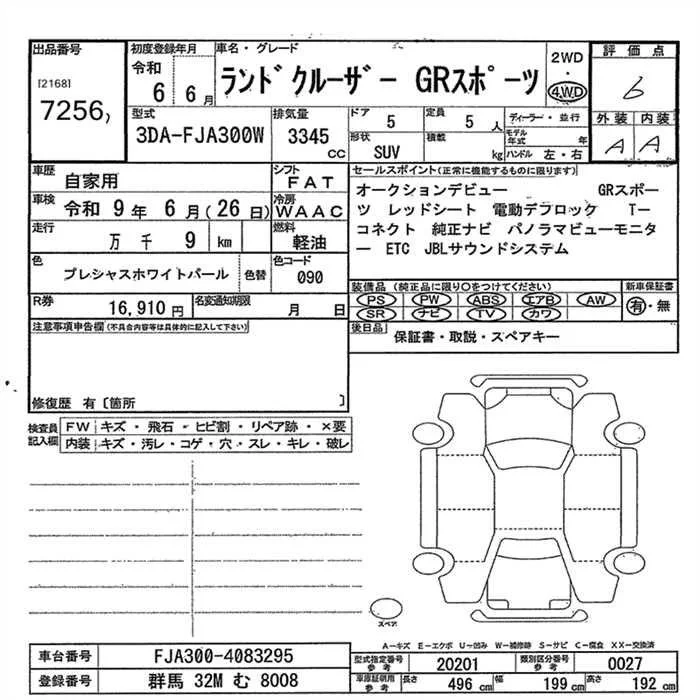 出品番号
[2168]
7256
初度登録年月
令和
6 6月
車名・グレード
ランドクルーザー GRスポーツ
2WD
・
4WD
評価点
6
外装 内装
A A
型式
3DA-FJA300W
排気量
3345
CC
ドア
5
定員
5人
ディーラー・並行
形状
SUV
積載
kg
モデル
年式 年
ハンドル 左・右
車歴
自家用
シフト
FAT
車検
令和 9年 6月(26日)
冷房
WAAC
走行
万 千 9 km
燃料
軽油
色
プレシャスホワイトパール
色替
色コード
090
R券
16,910円
名変通知期限
月 日
セールスポイント(正常に機能するものに限ります)
オークションデビュー GRスポー
ツ レッドシート 電動デフロック T-
コネクト 純正ナビ パノラマビューモニタ
ー ETC JBLサウンドシステム
装備品 (純正品に限り○をつけてください)
PS PW ABS エアB AW
SR ナビ TV カワ
新車保証書
有・無
後日品
保証書・取説・スペアキー
注意事項申告欄(不具合内容等は具体的に記入して下さい)
修復歴 有〔箇所 〕
検査員
記入欄
FW キズ・飛石・ヒビ割・リペア跡・×要
内装 キズ・汚レ・コゲ・穴・スレ・キレ・破レ
スペア
A-キズ E-エクボ U-凹み W-補修跡 S-サビ C-腐食 XX-交換済
車台番号
FJA300-4083295
登録番号
群馬 32M む 8008
型式指定番号
参考
20201
類別区分番号
参考
0027
車庫証明用
参考
長さ
496 cm
幅
199 cm
高さ
192 cm